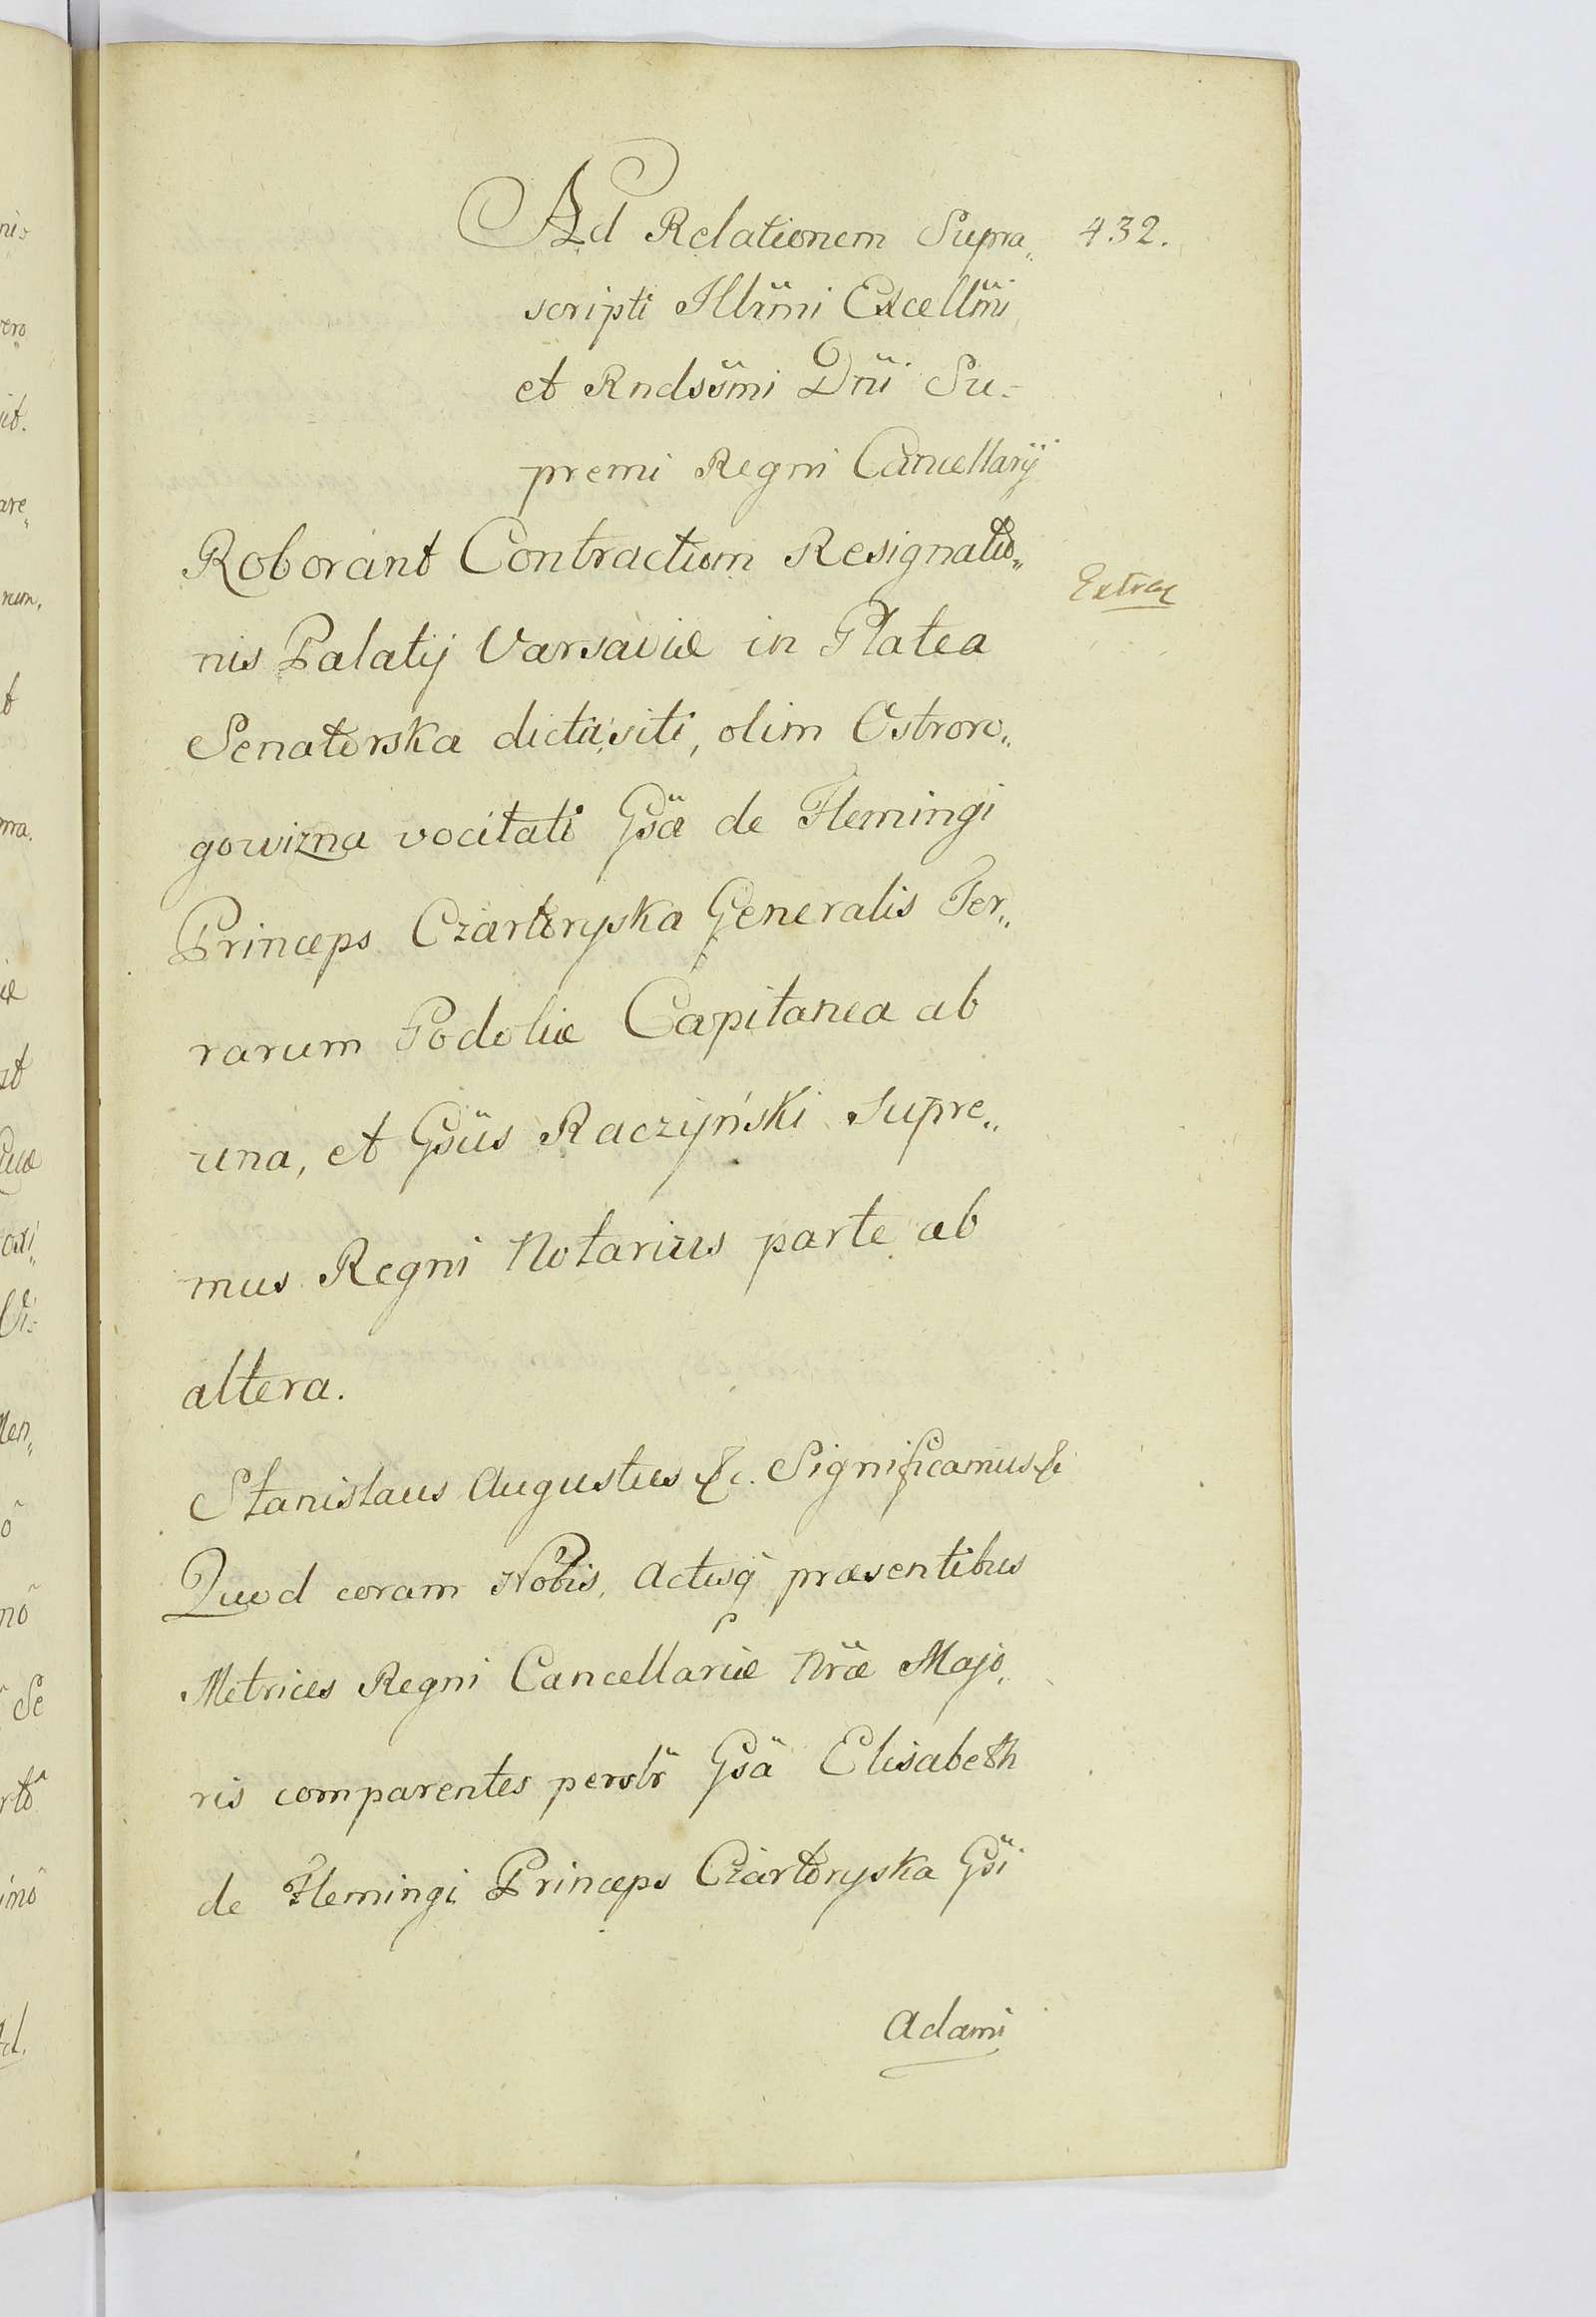 Ad Relationem Supra„ 432.
scripti Illr̈mi Excellm̈i
et Rndss̈mi Dn̈i Su-
premi Regni Cancellarÿ
Roborant Contractum Resignatio„
Extrac
nis Palatij Varsaviæ in Platea
Senatorska dicta, siti, olim Ostroro„
gowizna vocitati Gsä de Flemingi
Princeps Czartoryska Generalis Ter„
rarum Podoliæ Capitanea ab
una, et Gsüs Raczyński Supre„
mus Regni Notarius parte ab
altera.
Stanislaus Augustus &c. Significamus &c
Quod coram Nobis, Actisq̃ præsentibus
Metrices Regni Cancellariæ Nr̈æ Majo„
ris comparentes persl̈r Gsä Elisabeth
de Flemingi Princeps Czartoryska Gsi
Adami
nis
vero
it.
are„
rum,
t
iæ
st
Quæ
Vi-
Men„
ô
nô
Se
rtô
imô
Ad.